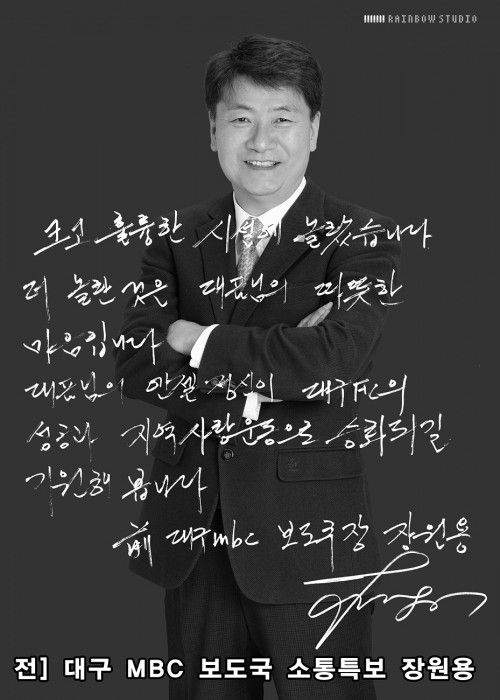 RAINBOW STUDIO
크고 훌륭한 시설에 놀랐습니다
더 놀란 것은 대표님의 따뜻한
마음입니다
대표님의 안젤 정신이 대구FC의
성공과 지역사랑운동으로 승화되길
기원해 봅니다
前 대구mbc 보도국장 장원용
전] 대구 MBC 보도국 소통특보 장원용